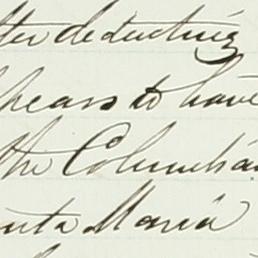 after deducting
appears to have
the Columbia
Santa Maria